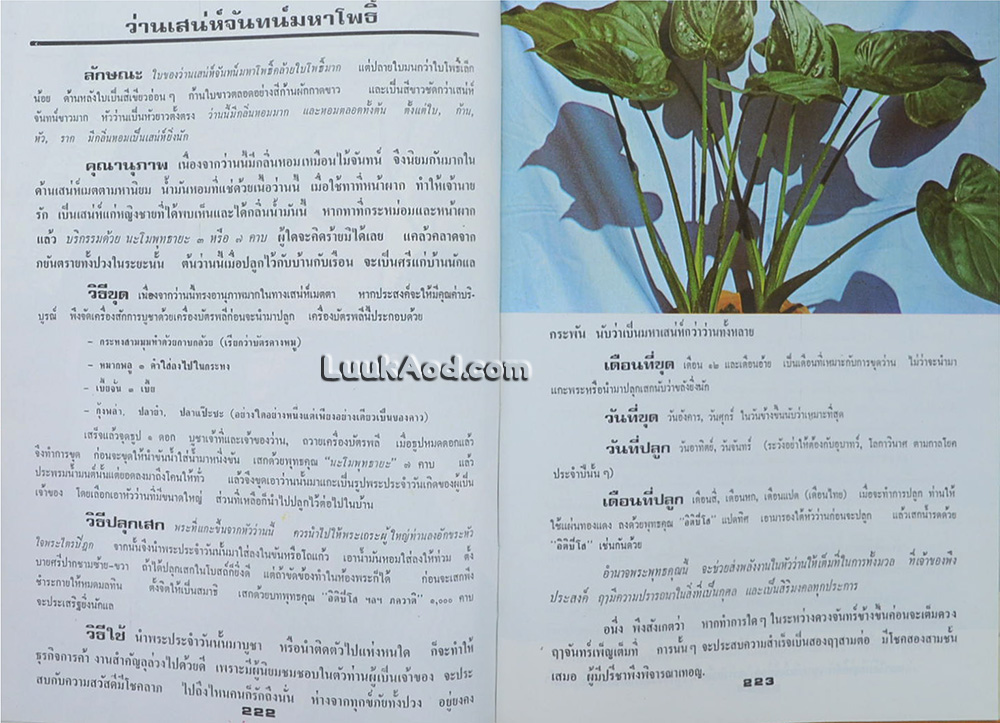 ว่านเสน่ห์จันทน์มหาโพธิ์
ลักษณะ ใบของว่านเสน่ห์จันทน์มหาโพธิ์คล้ายใบโพธิ์มาก แต่ปลายใบมนกว่าใบโพธิ์เล็ก
น้อย ด้านหลังใบเป็นสีเขียวอ่อนๆ ก้านใบขาวตลอดอย่างสีก้านผักกาดขาว และเป็นสีขาวชัดกว่าเสน่ห์
จันทน์ขาวมาก หัวว่านเป็นหัวยาวตั้งตรง ว่านนี้มีกลิ่นหอมมาก และหอมตลอดทั้งต้น ตั้งแต่ใบ, ก้าน,
หัว, ราก มีกลิ่นหอมเป็นเสน่ห์ยิ่งนัก
คุณานุภาพ เนื่องจากว่านนี้มีกลิ่นหอมเหมือนไม้จันทน์ จึงนิยมกันมากใน
ด้านเสน่ห์เมตตามหานิยม น้ำมันหอมที่แช่ด้วยเนื้อว่านนี้ เมื่อใช้ทาที่หน้าผาก ทำให้เจ้านาย
รัก เป็นเสน่ห์แก่หญิงชายที่ได้พบเห็นและได้กลิ่นน้ำมันนี้ หากทาที่กระหม่อมและหน้าผาก
แล้ว บริกรรมด้วย นะโมพุทธายะ ๓ หรือ ๗ คาบ ผู้ใดจะคิดร้ายมิได้เลย แคล้วคลาดจาก
ภยันตรายทั้งปวงในระยะนั้น ต้นว่านนี้เมื่อปลูกไว้กับบ้านกับเรือน จะเป็นศรีแก่บ้านนักแล
วิธีขุด เนื่องจากว่านนี้ทรงอานุภาพมากในทางเสน่ห์เมตตา หากประสงค์จะให้มีคุณค่าบริ-
บูรณ์ พึงจัดเครื่องสักการบูชาด้วยเครื่องบัตรพลีก่อนจะนำมาปลูก เครื่องบัตรพลีนี้ประกอบด้วย
– กระทงสามมุมทำด้วยกาบกล้วย (เรียกว่าบัตรคางหมู)
– หมากพลู ๑ คำใส่ลงไปในกระทง
– เบี้ยจั่น ๑ เบี้ย
– กุ้งพล่า, ปลายำ, ปลาแป๊ะซะ (อย่างใดอย่างหนึ่งแต่เพียงอย่างเดียวเป็นของคาว)
เสร็จแล้วจุดธูป ๑ ดอก บูชาเจ้าที่และเจ้าของว่าน, ถวายเครื่องบัตรพลี เมื่อธูปหมดดอกแล้ว
จึงทำการขุด ก่อนจะขุดให้นำขันน้ำใส่น้ำมาหนึ่งขัน เสกด้วยพุทธคุณ "นะโมพุทธายะ" ๗ คาบ แล้ว
ประพรมน้ำมนต์นั้นแต่ยอดลงมาถึงโคนให้ทั่ว แล้วจึงขุดเอาว่านนั้นมาแกะเป็นรูปพระประจำวันเกิดของผู้เป็น
เจ้าของ โดยเลือกเอาหัวว่านที่มีขนาดใหญ่ ส่วนที่เหลือก็นำไปปลูกไว้ต่อไปในบ้าน
วิธีปลุกเสก พระที่แกะขึ้นจากหัวว่านนี้ ควรนำไปให้พระเถระผู้ใหญ่ท่านลงอักขระหัว
ใจพระไตรปิฎก จากนั้นจึงนำพระประจำวันนั้นมาใส่ลงในขันหรือโถแก้ว เอาน้ำมันหอมใส่ลงให้ท่วม ตั้ง
บายศรีปากชามซ้าย-ขวา ถ้าได้ปลุกเสกในโบสถ์ก็ยิ่งดี แต่ถ้าขัดข้องทำในห้องพระก็ได้ ก่อนจะเสกพึง
ชำระกายให้หมดมลทิน ตั้งจิตให้เป็นสมาธิ เสกด้วยบทพุทธคุณ "อิติปิโส ฯลฯ ภควาติ" ๑,๐๐๐ คาบ
จะประเสริฐยิ่งนักแล
วิธีใช้ นำพระประจำวันนั้นมาบูชา หรือนำติดตัวไปแห่งหนใด ก็จะทำให้
ธุรกิจการค้า งานสำคัญลุล่วงไปด้วยดี เพราะมีผู้นิยมชมชอบในตัวท่านผู้เป็นเจ้าของ จะประ
สบกับความสวัสดีมีโชคลาภ ไปถึงไหนคนก็รักถึงนั่น ห่างจากทุกข์ภัยทั้งปวง อยู่ยงคง
222
กระพัน นับว่าเป็นมหาเสน่ห์กว่าว่านทั้งหลาย
เดือนที่ขุด เดือน ๑๒ และเดือนอ้าย เป็นเดือนที่เหมาะกับการขุดว่าน ไม่ว่าจะนำมา
แกะพระหรือนำมาปลูกเสกนับว่าขลังยิ่งนัก
วันที่ขุด วันอังคาร, วันศุกร์ ในวันข้างขึ้นนับว่าเหมาะที่สุด
วันที่ปลูก วันอาทิตย์, วันจันทร์ (ระวังอย่าให้ต้องกับอุบาทว์, โลกาวินาศ ตามกาลโยค
ประจำปีนั้นๆ)
เดือนที่ปลูก เดือนสี่, เดือนหก, เดือนแปด (เดือนไทย) เมื่อจะทำการปลูก ท่านให้
ใช้แผ่นทองแดง ลงด้วยพุทธคุณ "อิติปิโส" แปดทิศ เอามารองใต้หัวว่านก่อนจะปลูก แล้วเสกน้ำรดด้วย
"อิติปิโส" เช่นกันด้วย
อำนาจพระพุทธคุณนี้ จะช่วยส่งพลังงานในหัวว่านให้เต็มที่ในการทั้งมวล ที่เจ้าของพึง
ประสงค์ ฤามีความปรารถนาในสิ่งที่เป็นกุศล และเป็นสิริมงคลทุกประการ
อนึ่ง พึงสังเกตว่า หากทำการใดๆ ในระหว่างดวงจันทร์ข้างขึ้นค่อนจะเต็มดวง
ฤาจันทร์เพ็ญเต็มที่ การนั้นๆ จะประสบความสำเร็จเป็นสองฤาสามต่อ มีโชคสองสามชั้น
เสมอ ผู้มีปรีชาพึงพิจารณาเทอญ.
223
LuukAod.com